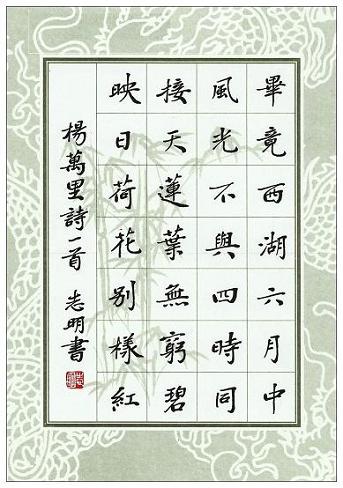 畢竟西湖六月中
風光不與四時同
接天蓮葉無窮碧
映日荷花別樣紅
楊萬里詩一首 志明書